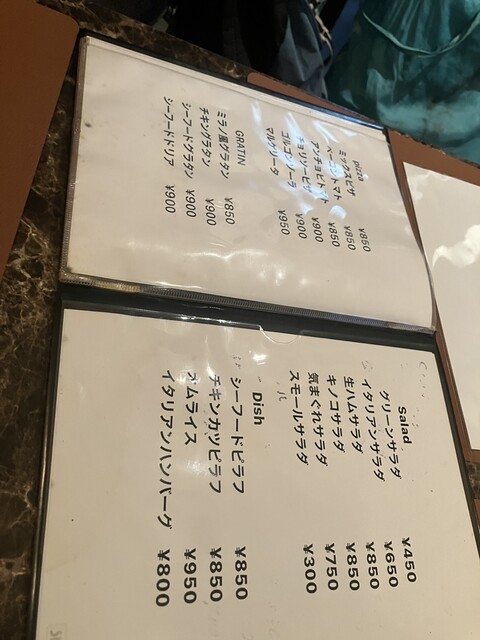 pizza
ミックスピザ ¥850
ベーコントマト ¥850
アンチョビトマト ¥850
チョリソーピザ ¥900
ゴルゴンゾーラ ¥900
マルゲリータ ¥950
GRATIN
ミラノ風グラタン ¥850
チキングラタン ¥900
シーフードグラタン ¥900
シーフードドリア ¥900
Salad
グリーンサラダ ¥450
イタリアンサラダ ¥650
生ハムサラダ ¥850
キノコサラダ ¥850
気まぐれサラダ ¥750
スモールサラダ ¥300
Dish
シーフードピラフ ¥850
チキンカツピラフ ¥850
オムライス ¥950
イタリアンハンバーグ ¥800